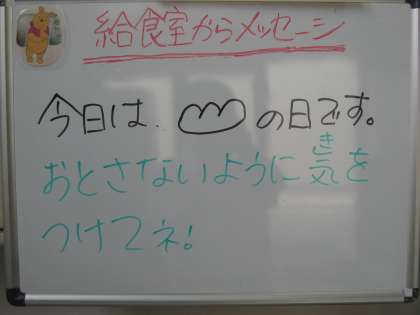 給食室からメッセージ
今日は、の日です。
おとさないように気をつ
けてネ!